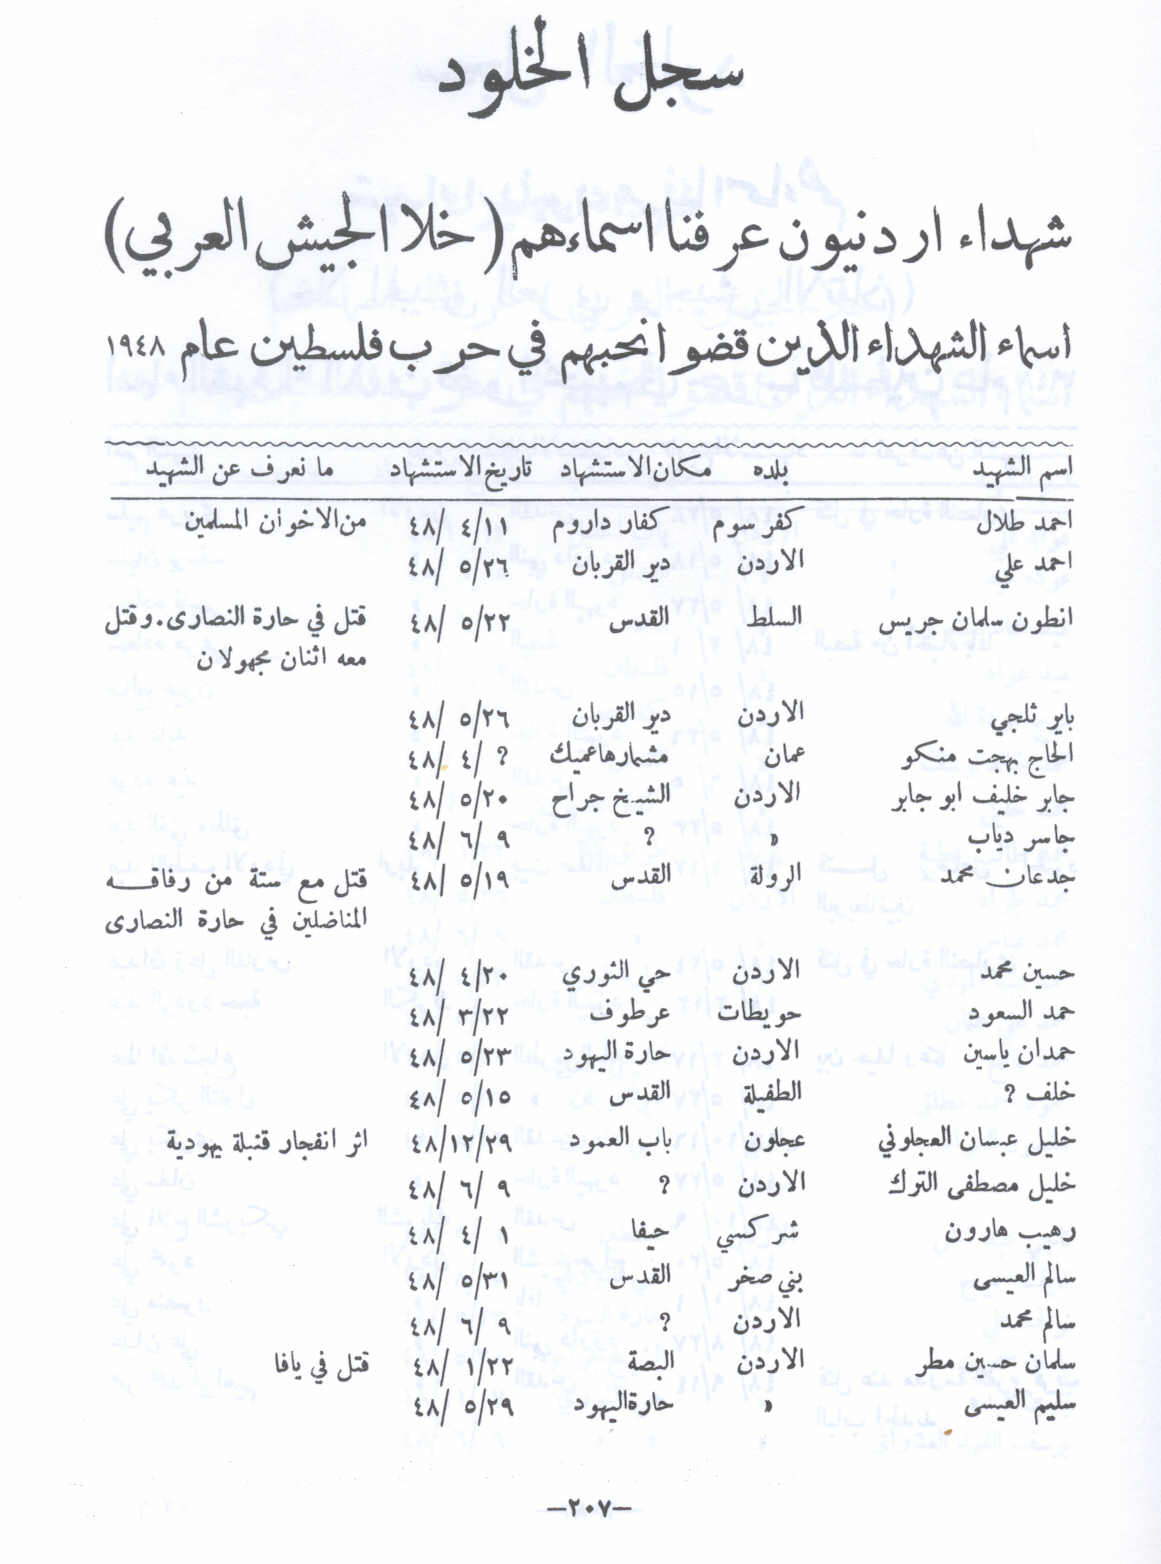 سجل الخلود
شهداء اردنيون عرفنا اسماءهم (خلا الجيش العربي)
اسماء الشهداء الذين قضوا نحبهم في حرب فلسطين عام ١٩٤٨
اسم الشهيد بلده مكان الاستشهاد تاريخ الاستشهاد ما نعرف عن الشهيد
احمد طلال كفر سوم كفار داروم ٤٨/ ٤/١١ من الاخوان المسلمين
احمد علي الاردن دير القربان ٤٨/ ٥/٢٦
انطون سلمان جريس السلط القدس ٤٨/ ٥/٢٢ قتل في حارة النصارى. وقتل
معه اثنان مجهولان
باير ثلجي الاردن دير القربان ٤٨/ ٥/٢٦
الحاج بهجت منكو عمان مشمارهاعميك ٤٨/ ٤/ ?
جابر خليف ابو جابر الاردن الشيخ جراح ٤٨/ ٥/٢٠
جاسر دياب » ? ٤٨/ ٦/ ٩
جدعان محمد الرولة القدس ٤٨/ ٥/١٩ قتل مع ستة من رفاقه
المناضلين في حارة النصارى
حسين محمد الاردن حي الثوري ٤٨/ ٤/٢٠
حمد السعود حويطات عرطوف ٤٨/ ٣/٢٢
حمدان ياسين الاردن حارة اليهود ٤٨/ ٥/٢٣
خلف ? الطفيلة القدس ٤٨/ ٥/١٥
خليل عبسان العجلوني عجلون باب العمود ٤٨/١٢/٢٩ اثر انفجار قنبلة يهودية
خليل مصطفى الترك الاردن ? ٤٨/ ٦/ ٩
رهيب هارون شركسي حيفا ٤٨/ ٤/ ١
سالم العيسى بني صخر القدس ٤٨/ ٥/٣١
سالم محمد الاردن ? ٤٨/ ٦/ ٩
سلمان حسين مطر الاردن البصة ٤٨/ ١/٢٢ قتل في يافا
سليم العيسى » حارة اليهود ٤٨/ ٥/٢٩
—٢٠٧—